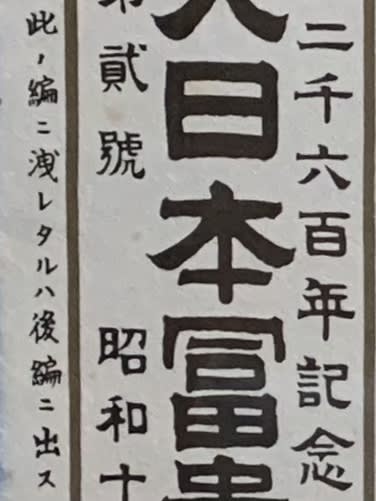 二千六百年記念
大日本冨
第貳號 昭和十
此ノ編ニ洩レタルハ後編ニ出ス